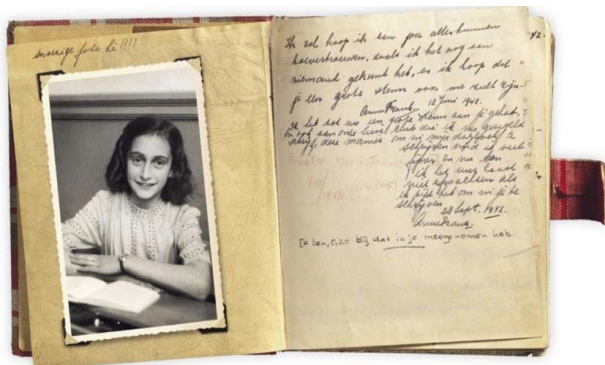 foto
Ik zal hoop ik aan jou alles kunnen
toevertrouwen, zoals ik het nog aan
niemand gekund heb, en ik hoop dat
je een grote steun voor me zult zijn.
Anne Frank 12 Juni 1942.
Ik heb tot nu een grote steun aan je gehad,
en ook aan onze lieve club die ik nu geregeld
schrijf, deze manier om in mijn dagboek te
schrijven vind ik veel
fijner en nu kan
ik het uur haast
niet afwachten als
ik tijd heb om in je te
schrijven.
28 Sept. 1942.
Anne Frank
Ik ben, zo blij dat ik je meegenomen heb.
42.